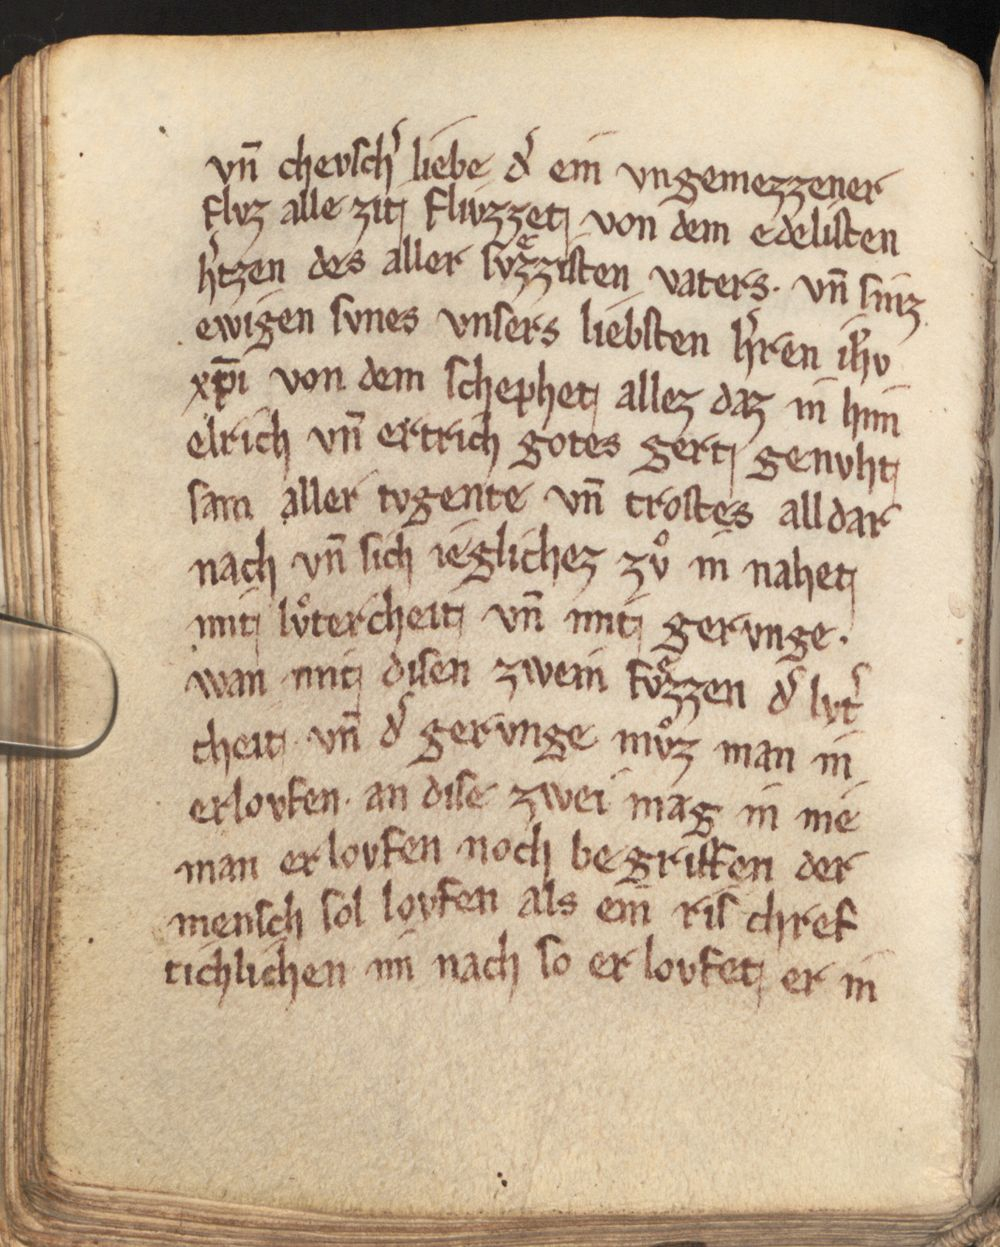 vn̄ chevſch͛ liebe d͛ ein vngemezzener
flvz alle zit flivzzet von dem edeliſten
h͛tzen des aller ſvͤzziſten vaters. vn̄ ſinz
ewigen ſvnes vnſers liebſten h͛ren ih̄v
xp̄i von dem ſchephet allez daz in him
elrich vn̄ ertrich gotes gert genvht
ſam aller tvgente vn̄ troſtes all dar
nach vn̄ ſich ieglichez zvͦ in nahet
mit lvͦtercheit vn̄ mit gervnge.
wan mit diſen zwein fvͤzzen d͛ lvt͛
cheit vn̄ d͛ gervnge mvͦz man in
erlovfen. an diſe zwei mag in nie
man erlovfen noch begriffen der
menſch ſol lovfen als ein riſ chref
tichlichen im nach ſo er lovfet er in